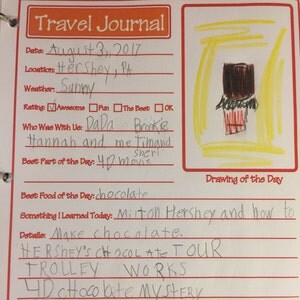 Travel Journal
Date: August 3, 2017
Location: Hershey, PA
Weather: Sunny
Rating: Awesome Fun The Best OK
Who Was With Us: DaDa Brooke
Hannah and me Tim and
Sheri
Best Part of the Day: 4D movie
Drawing of the Day
Best Food of the Day: chocolate
Something I Learned Today: Milton Hershey and how to
Details: Make chocolate.
HERSHEY'S CHOCOLATE TOUR
TROLLEY WORKS
4D chocolate MYSTERY